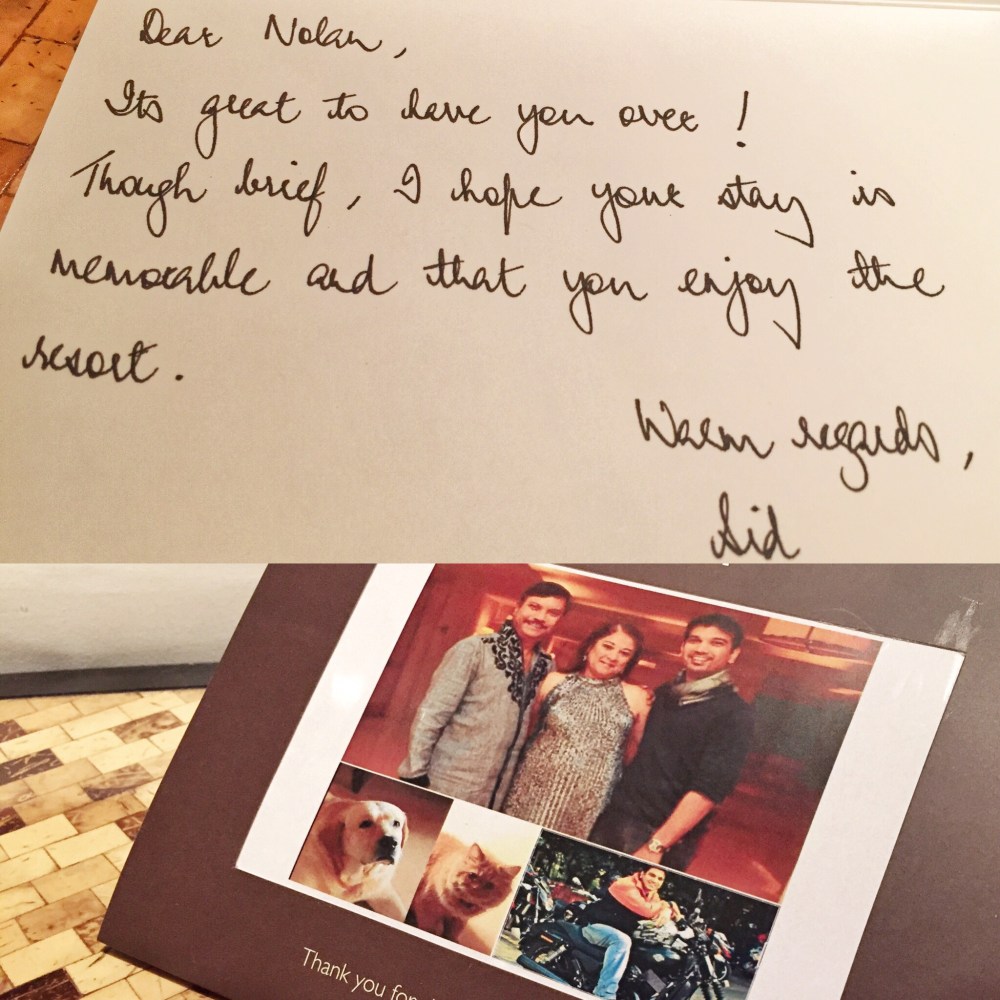 Dear Nolan,
Its great to have you over!
Though brief, I hope your stay is
memorable and that you enjoy the
resort.
Warm regards,
Sid
Thank you for